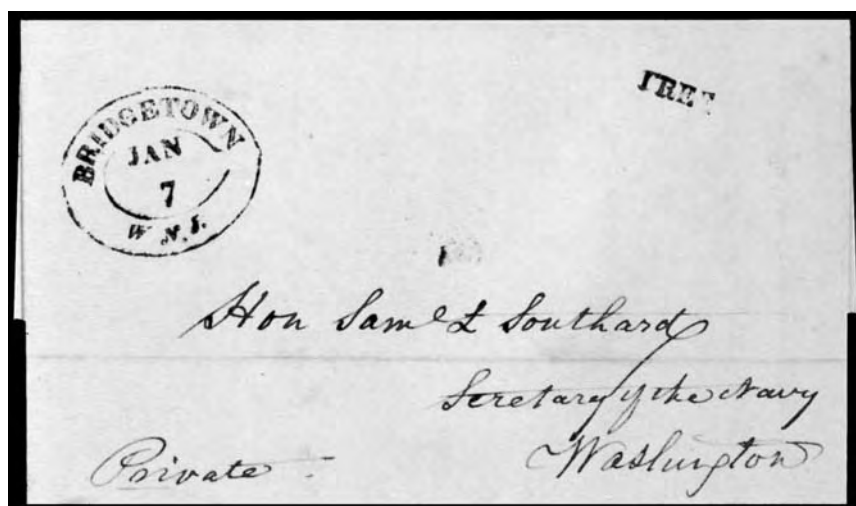 BRIDGETOWN
JAN
7
W N.J.
FREE
Hon Saml L Southard
Secretary of the Navy
Washington
Private